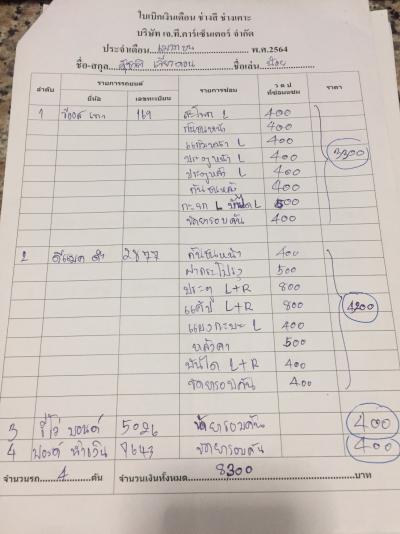 ใบเบิกเงินเดือน ช่างสี ช่างเคาะ
บริษัท เอ.ที.คาร์เซ็นเตอร์ จำกัด
ประจำเดือน....เมษายน....พ.ศ.2564
ชื่อ-สกุล.... ชื่อเล่น....น้อย
ลำดับ รายการรถยนต์ รายการซ่อม ว ด ป ที่ซ่อมเสร็จ ราคา
ยี่ห้อ เลขทะเบียน
1 วีออส เทา 169 L 400
กันชนหน้า 400
แก้มหน้า L 400
ประตูหน้า L 400 3,300
ประตูหลัง L 400
กันชนหลัง 400
L บันได L 500
ขัดยารอบคัน 400
2 ดีแมค ดำ 2877 กันชนหน้า 400
ฝากระโปรง 500
ประตู L+R 800
แค๊ป L+R 800 4,200
แผงกระบะ L 400
หลังคา 500
บันได L+R 400
ขัดยารอบคัน 400
3 รีโว่ บอนด์ 5026 ขัดยารอบคัน 400
4 ฟอร์ด น้ำเงิน 9643 ขัดยารอบคัน 400
จำนวนรถ....4....คัน จำนวนเงินทั้งหมด....8300....บาท